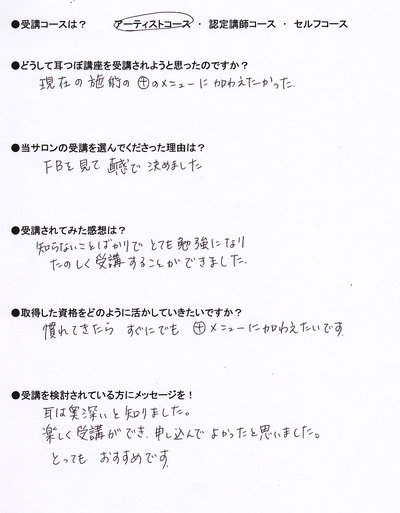 ●受講コースは？　アーティストコース ・ 認定講師コース ・ セルフコース
●どうして耳つぼ講座を受講されようと思ったのですか？
現在の施術の ㊉のメニューに加わえたかった.
●当サロンの受講を選んでくださった理由は？
FBを見て 直感で 決めました
●受講されてみた感想は？
知らないことばかりで とても勉強になり
たのしく受講することができました.
●取得した資格をどのように活かしていきたいですか？
慣れてきたら すぐにでも ㊉メニューに加わえたいです.
●受講を検討されている方にメッセージを！
耳は奥深いと知りました。
楽しく受講ができ、申し込んで よかったと思いました。
とっても おすすめです.